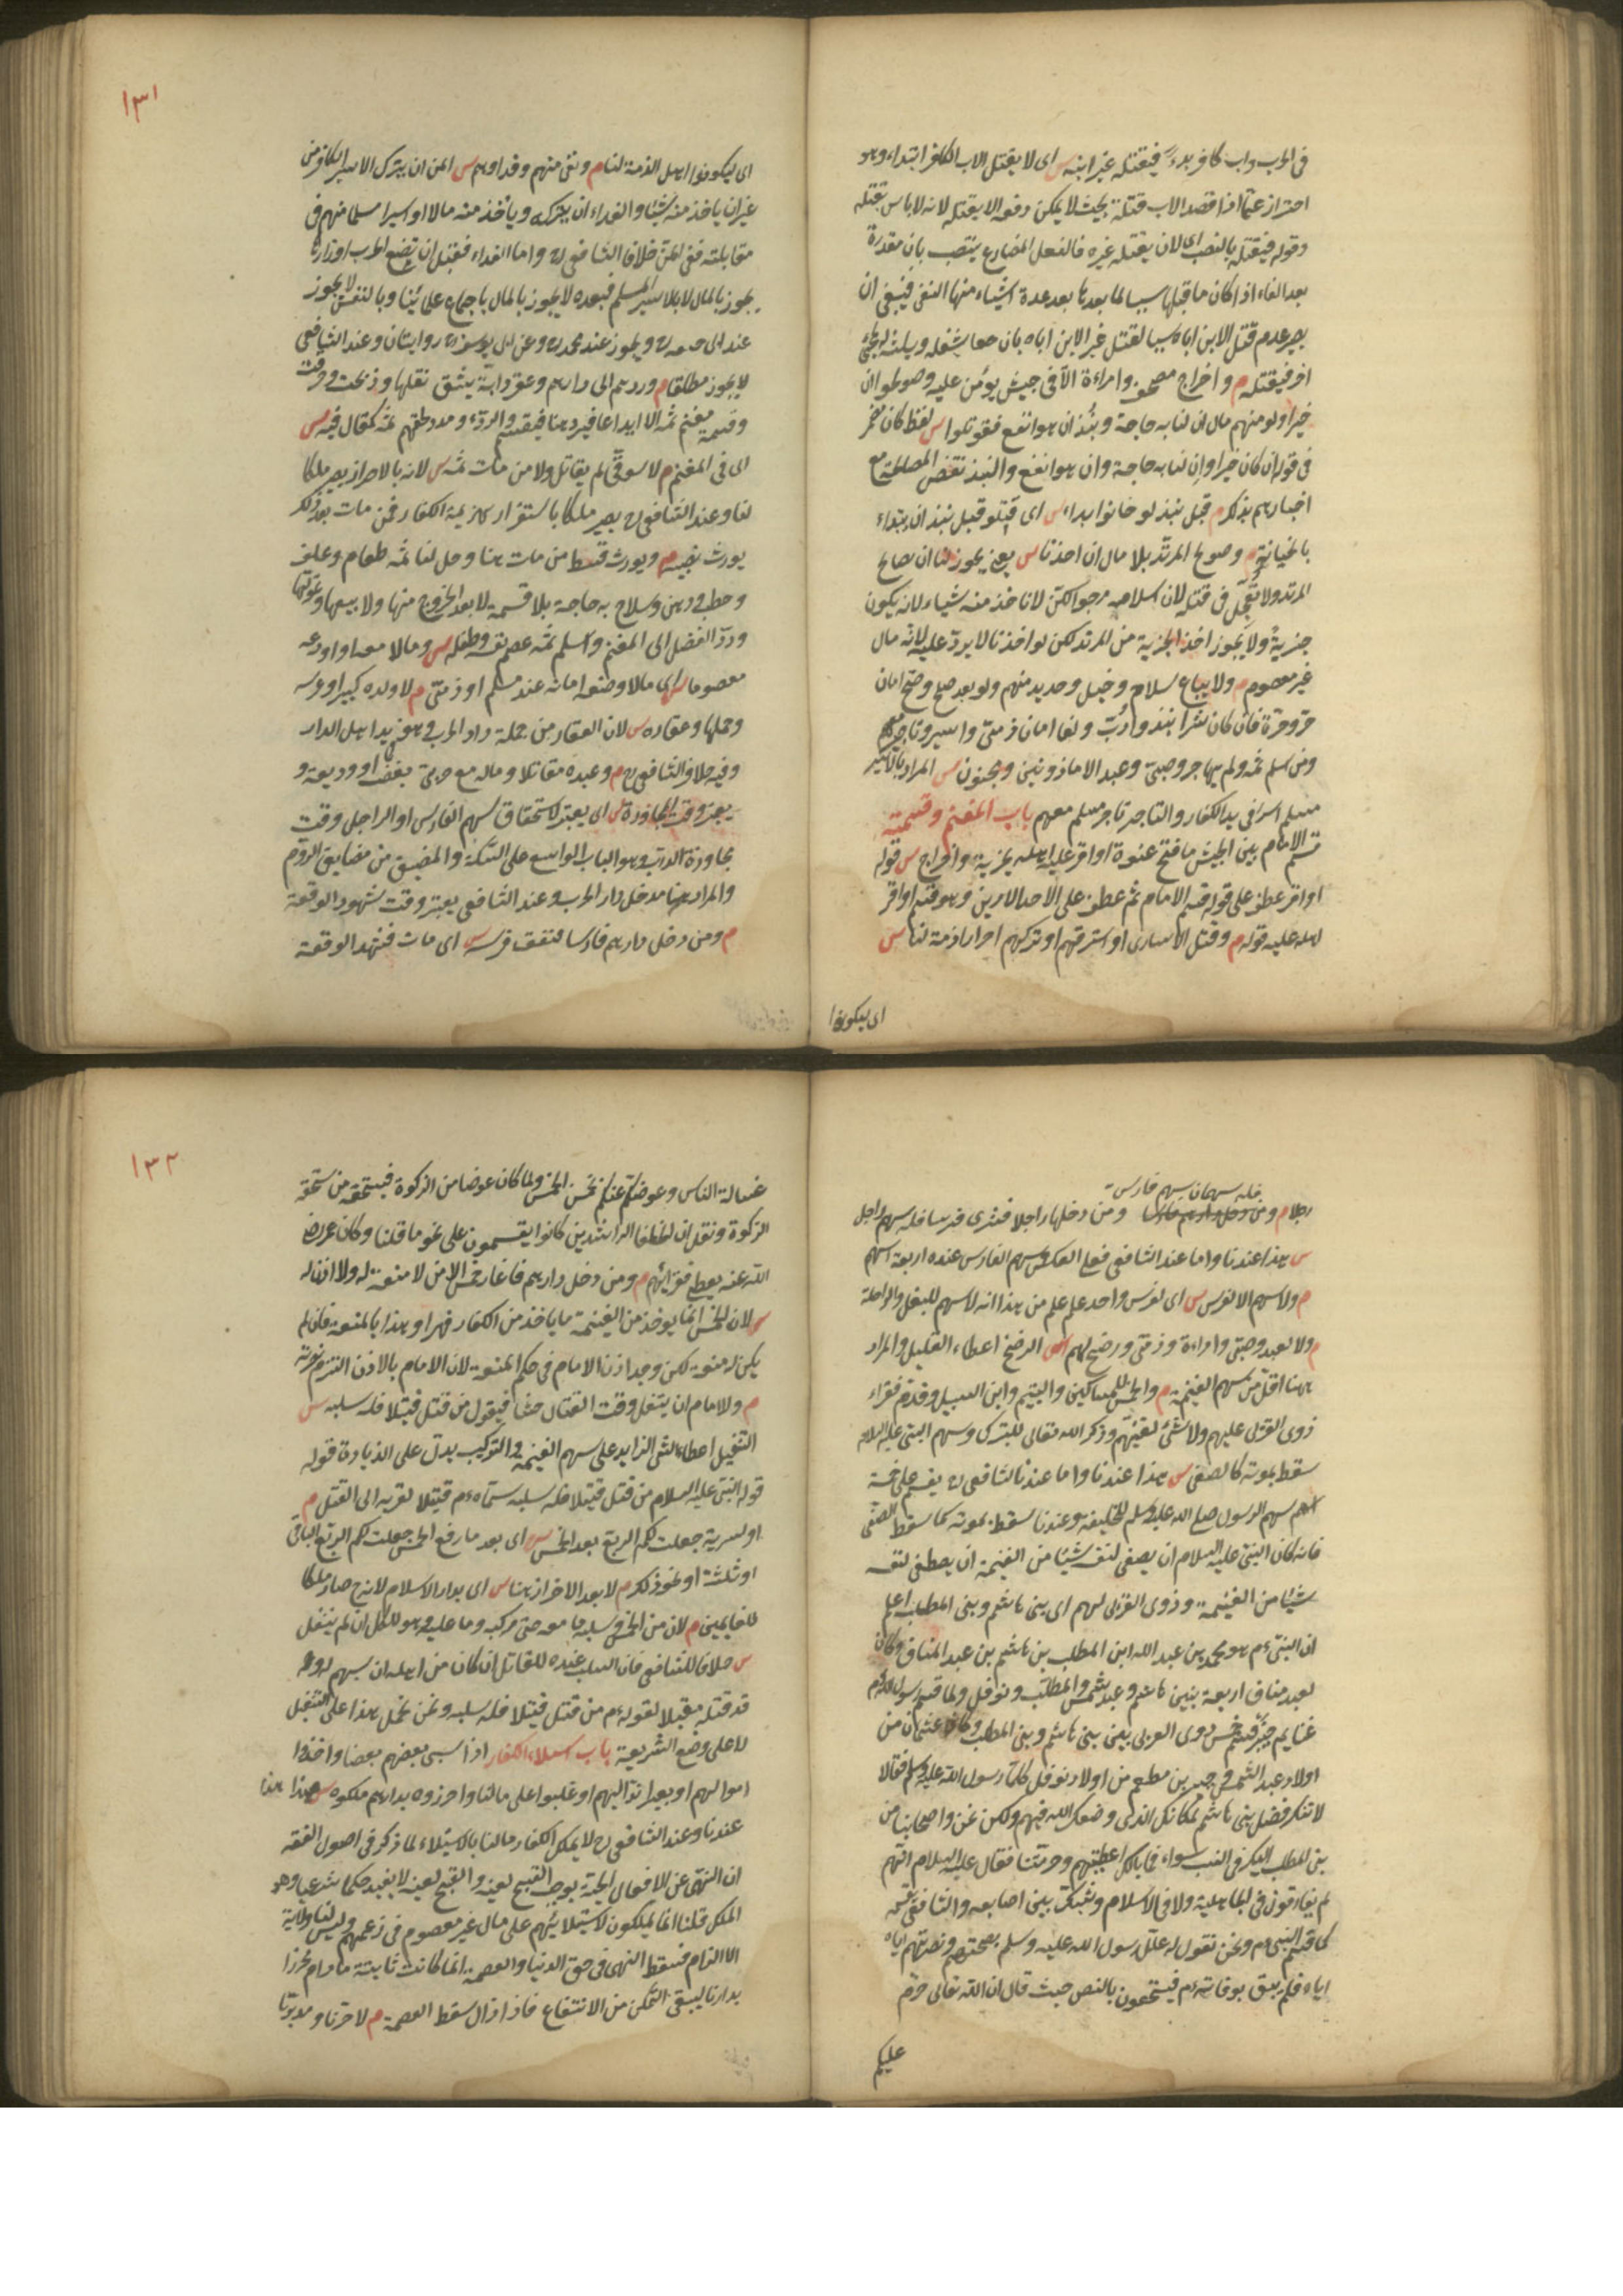 في الحرب واب كافر بدء فيقتله غير ابنه س اى لا يقتل الاب الكافر ابتداء وهو
احتراز عما اذا قصد الاب قتله بحيث لا يمكن دفعه الا بقتله لانه لا باس بقتله
وقوله فيقتله بالنصب اى لان يقتله غيره فالفعل المضارع ينتصب بان مقدرة
بعد الفاء اذا كان ما قبلها سببا لما بعدها بعد عدة اشياء منها النفى فينبغى ان
يصير عدم قتل الابن اباه سببا لقتل غير الابن اباه بان يشغله
اخر فيقتله م واخراج مصحف وامراءة الا فى جيش يؤمن عليه وصولحوا ان
خيرا ولو منهم مال ان لنا به حاجة ونبذ ان هو انفع فقوتلوا س لفظ كان مضمر
فى قوله ان كان خيرا وان لنا به حاجة وان هو انفع والنبذ نقض المصالحة مع
اخبارهم بذلك م قبل نبذ لو خانوا بداء س اى قتلو قبل نبذ ان ابتداء
بالخيانة م وصولح المرتد بلا مال ان اخذنا س يعنى يجوز لنا ان نصالح
المرتد ولا نعجل فى قتله لان اسلامه مرجو لكن لا ناخذ منه شياء لانه يكون
جزية ولا يجوز اخذ الجزية من المرتد لكن لو اخذنا لا يرد عليه لانه مال
غير معصوم م ولا يباع سلاح وخيل وحديد منهم ولو بعد صلح وصح امان
حر وحرة فان كان شرا نبذ وادب ولغا امان ذمى واسير وتاجر معهم
ومن اسلم ثمه ولم يهاجر وصبى وعبد الا ماذونين ومجنون س المراد بالاسير
مسلم اسر فى يد الكفار والتاجر تاجر مسلم معهم باب المغنم وقسمته
قسم الامام بين الجيش ما فتح عنوة او اقر عليه اهله بجزية واخراج س قوله
او اقر عطف على قوله قسم الامام ثم عطف على الاحد الامرين وهو قسم او اقر
اهله عليه قوله م وقتل الاسارى او استرقهم او تركهم احرارا ذمة لنا س
اى ليكونوا
١٣١
اى ليكونوا اهل الذمة لنا م ونفى منهم وفداوهم س المن ان يترك الاسير الكافر من
غير ان ياخذ منه شيئا والفداء ان يتركه وياخذ منه مالا او اسيرا مسلما منهم فى
مقابلته ففى المن خلاف الشافعى رح واما الفداء فقبل ان تضع الحرب اوزارها
يجوز بالمال لا بالاسير المسلم فبعده لا يجوز بالمال باجماع علمائنا وبالنفس لا يجوز
عند ابى ح رح ويجوز عند محمد رح وعن ابى يوسف رح روايتان وعند الشافعى
لا يجوز مطلقا م وردهم الى دارهم وعقر دابة يشق نقلها وذبحت وحرقت
وقسمة مغنم ثمه الا ايداعا فيرد هنا فيقسم والردء ومدد لحقهم ثمه كمقاتل فيه س
اى فى المغنم م لا سوقى لم يقاتل ولا من مات ثمه س لانه بالاحراز يصير ملكا
لنا وعند الشافعى رح يصير ملكا باستقرار هزيمة الكفار فمن مات بعد ذلك
يورث نصيبه م ويورث قسط من مات هنا وحل لنا ثمه طعام وعلف
وحطب ودهن وسلاح به حاجة بلا قسمة لا بعد الخروج منها ولا بيعها وتمولها
ورد الفضل الى المغنم واسلم ثمه عصم نفسه وطفله س ومالا معه او اودعه
معصوما س اى مالا وضعه امانة عند مسلم او ذمى م لا ولده كبيرا وعرسه
وحملها وعقاره س لان العقار من جملة دار الحرب وهو فى يد اهل الدار
وفيه خلاف الشافعى رح م وعبده مقاتلا وماله مع حربى بغصب او وديعة و
يعتبر وقت المجاوزة س اى يعتبر لاستحقاق سهم الفارس او الراجل وقت
مجاوزة الدرب وهو الباب الواسع على السكة والمضيق من مضايق الروم
والمراد هنا مدخل دار الحرب وعند الشافعى يعتبر وقت شهود الوقعة
م ومن دخل دارهم فارسا فنفق فرسه س اى مات فشهد الوقعة
فله سهمان سهم فارس
رجلا م ومن دخل دارهم فارسا ومن دخلها راجلا فشرى فرسا فله سهم راجل
س هذا عندنا واما عند الشافعى فعلى العكس وسهم الفارس عنده اربعة اسهم
م ولا سهم الا لفرس س اى لفرس واحد علم من هذا انه لا سهم للبغل والراحلة
م ولا لعبد وصبى وامراءة وذمى ورضخ لهم س الرضخ اعطاء القليل والمراد
هنا اقل من سهم الغنيمة م والخمس للمساكين واليتيم وابن السبيل وقدم فقراء
ذوى القربى عليهم ولا شئ لغنيهم وذكر الله تعالى للتبرك وسهم النبى عليه السلام
سقط بموته كالصفى س هذا عندنا واما عند الشافعى رح يقسم على خمسة
اسهم سهم الرسول صلى الله عليه وسلم للخليفة وعندنا سقط بموته كما سقط الصفى
فانه كان النبى عليه السلام ان يصفى لنفسه شيئا من الغنيمة ان يصطفى لنفسه
شيئا من الغنيمة وذوى القربى لهم اى بنى هاشم وبنى المطلب اعلم
ان النبى ءم هو محمد بن عبد الله ابن المطلب بن هاشم بن عبد المناف وكان
لعبد مناف اربعة بنين هاشم وعبد شمس والمطلب ونوفل ولما قسم رسول الله ءم
غنايم خيبر قسم خمس ذوى القربى بين بنى هاشم وبنى المطلب وكان عثمان من
اولاد عبد الشمس وجبير بن مطعم من اولاد نوفل كلما رسول الله عليه وسلم فقالا
لا ننكر فضل بنى هاشم لمكانك الذى وضعك الله فيهم ولكن نحن واصحابنا من
بنى المطلب اليك فى النسب سواء فما بالك اعطيتهم وحرمتنا فقال عليه السلام انهم
لم يفارقون فى الجاهلية ولا فى الاسلام وشبك بين اصابعه والشافعى قسم
كما قسم النبى ءم ونحن نقول له علل رسول الله عليه وسلم بصحبتهم ونصرتهم اياه
اياه فلم يبق بوفاته ءم فيستحقون بالنص حيث قال ان الله تعالى حرم
عليكم
١٣٢
غسالة الناس وعوضكم عنكم بخمس الخمس ولما كان عوضا من الزكوة فيستحقه من يستحق
الزكوة ونقل ان الخلفا الراشدين كانوا يقسمون على نحو ما قلنا وكان عمر رضى
الله عنه يعطى فقرائهم م ومن دخل دارهم فاغار خمس الا من لا منعة له ولا اذن له
س لان الخمس انما يوخذ من الغنيمة ما ياخذ من الكفار قهرا وهذا بالمنعة فان لم
يكن له منعة لكن وجد اذن الامام فى حكم المنعة لان الامام بالاذن التزم نصرته
م وللامام ان ينفل وقت القتال حثا فيقول من قتل قتيلا فله سلبه س
التنفيل اعطاء الشى الزايد على سهم الغنيمة والتركيب يدل على الزيادة قوله
قوله النبى عليه السلام من قتل قتيلا فله سلبه سماه ءم قتيلا لقربه الى القتل م
او لسرية جعلت لكم الربع بعد الخمس س اى بعد ما رفع الخمس جعلت لكم الربع الباقى
او ثلثه او نحو ذلك م لا بعد الاحراز هنا س اى بدار الاسلام لانه ح صار ملكا
للغانمين م لان من الخمس وسلبه ما معه حتى مركبه وما عليه وهو للكل ان لم ينفل
س خلافا للشافعى فان السلب عنده للقاتل ان كان من اهله ان يسهم له وقد
قد قتله مقبلا لقوله ءم من قتل قتيلا فله سلبه ونحن نحمل هذا على التنفيل
لا على وضع الشريعة باب استيلاء الكفار اذا سبى بعضهم بعضا واخذوا
اموالهم او بعيرا ند اليهم او غلبوا على مالنا واحرزوه بدارهم ملكوه س هذا هذا
عندنا وعند الشافعى رح لا يملك الكفار مالنا بالاستيلاء لما ذكر فى اصول الفقه
ان النهى عن الافعال الحسية يوجب القبيح لعينه والقبيح لعينه لا يفيد حكما شرعيا وهو
الملك قلنا انما يملكون لاستيلائهم على مال غير معصوم فى زعمهم وليس لنا ولاية
الالزام فسقط النهى فى حق الدنيا والعصمة انما كانت ثابتة ما دام محرزا
بدارنا ليبقى التمكن من الانتفاع فاذا زال سقط العصمة م لا حرنا ومدبرنا